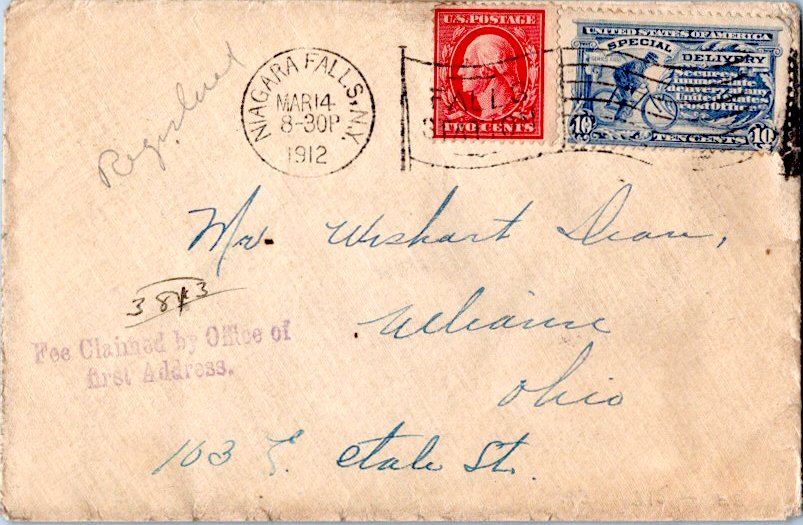 Registered
NIAGARA FALLS, N.Y.
MAR 14
8-30P
1912
U.S. POSTAGE
TWO CENTS
UNITED STATES OF AMERICA
SPECIAL DELIVERY
Secures
immediate
delivery at any
United States
post office
10 TEN CENTS 10
Mr. Wishart Dean,
Alliance
Ohio
103 E. State St.
3843
Fee Claimed by Office of
first Address.